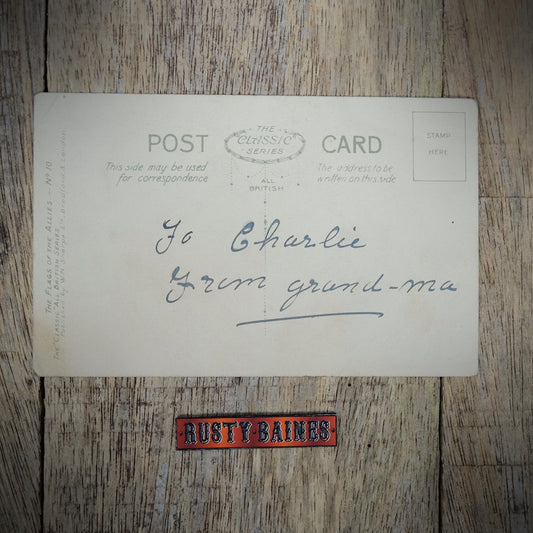 POST
THE
CLASSIC
SERIES
CARD
STAMP
HERE
This side may be used
for correspondence
The address to be
written on this side
ALL
BRITISH
To Charlie
From grand-ma
THE FLAGS OF THE ALLIES — No 10.
THE "CLASSIC" ALL BRITISH SERIES
London.
RUSTY·BAINES